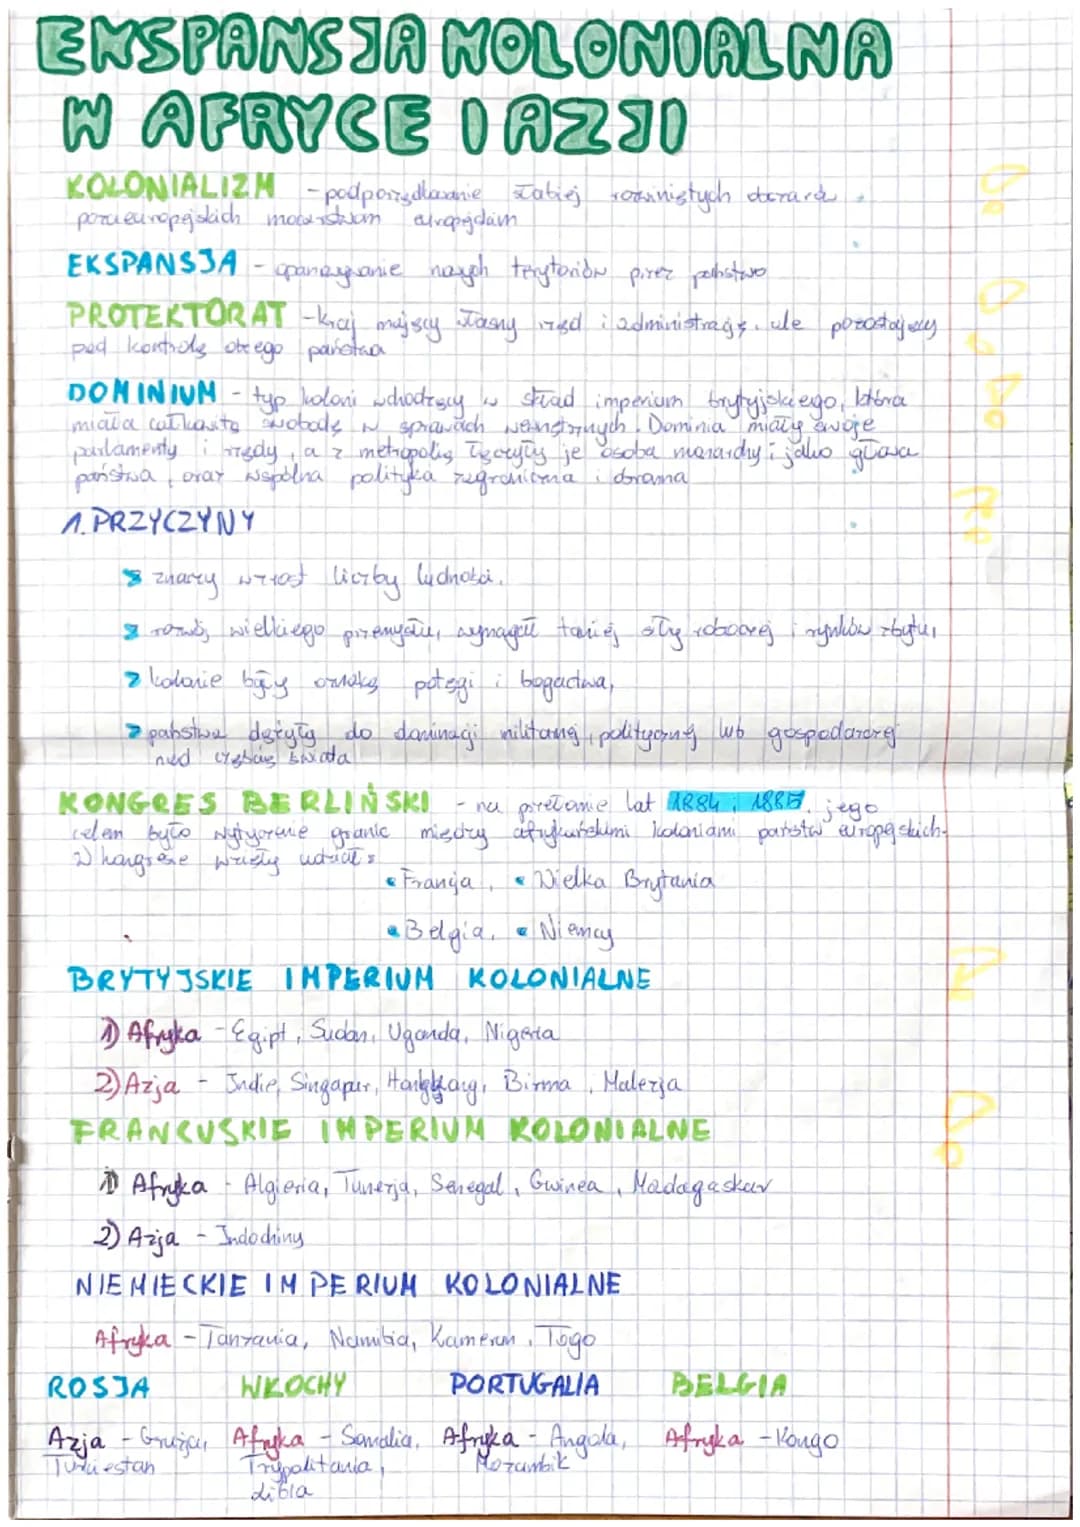 EKSPANSJA KOLONIALNA
W AFRYCE I AZJI
KOLONIALIZM - podporządkowanie słabiej rozwiniętych
pozaeuropejskich mocarstwom europejskim
EKSPANSJA - opanowywanie nowych terytoriów przez państwo
PROTEKTORAT - kraj mający własny rząd i administrację, ale pozostający
pod kontrolą obcego państwa
DOMINIUM - typ koloni wchodzący w skład imperium brytyjskiego, która
miała całkowitą swobodę w sprawach wewnętrznych. Dominia miały swoje
parlamenty i rządy, a z metropolią łączyły je osoba monarchy i jako głowa
państwa, oraz wspólna polityka zagraniczna i obronna
1. PRZYCZYNY
znaczny wzrost liczby ludności,
rozwój wielkiego przemysłu, wymagał taniej siły roboczej i rynków zbytu,
kolonie były oznaką potęgi i bogactwa,
państwa dążyły do dominacji militarnej, politycznej lub gospodarczej
nad częścią świata
KONGRES BERLIŃSKI - na przełomie lat 1884 i 1885, jego
celem było wytyczenie granic między afrykańskimi koloniami państw europejskich.
W kongresie wzięły udział:
• Francja, • Wielka Brytania
• Belgia, • Niemcy
BRYTYJSKIE IMPERIUM KOLONIALNE
1) Afryka - Egipt, Sudan, Uganda, Nigeria
2) Azja - Indie, Singapur, Hongkong, Birma, Malezja
FRANCUSKIE IMPERIUM KOLONIALNE
1) Afryka - Algieria, Tunezja, Senegal, Gwinea, Madagaskar
2) Azja - Indochiny
NIEMIECKIE IMPERIUM KOLONIALNE
Afryka - Tanzania, Namibia, Kamerun, Togo
ROSJA WŁOCHY PORTUGALIA BELGIA
Azja - Gruzja, Afryka - Somalia, Afryka - Angola, Afryka - Kongo
Turkiestan Trypolitania, Mozambik
Libia